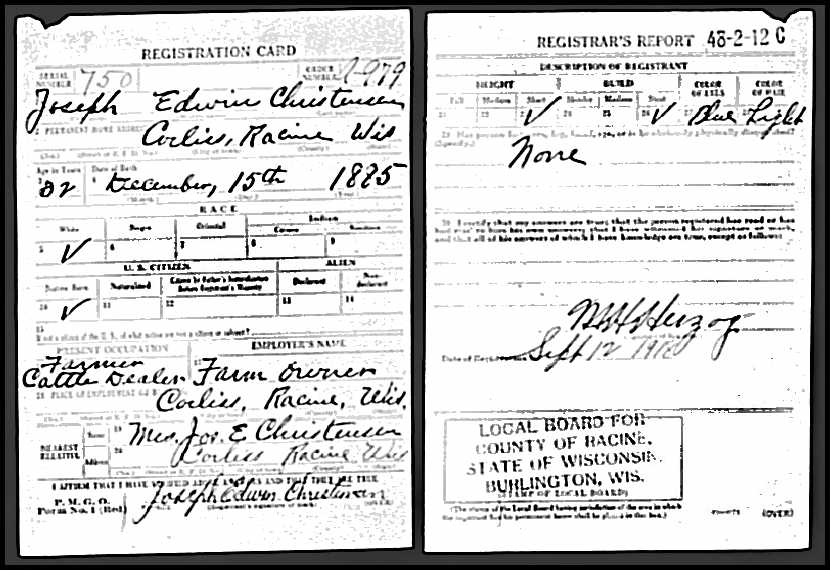 REGISTRATION CARD
SERIAL NUMBER 750 ORDER NUMBER A-979
Joseph Edwin Christensen
PERMANENT HOME ADDRESS
Corliss, Racine Wis
Age in Years Date of Birth
32 December, 15th 1885
RACE
White Negro Oriental Indian
5 6 7 8 9
U. S. CITIZEN ALIEN
Native Born Naturalized Citizen by Father's Naturalization Before Registrant's Majority Declarant Non-declarant
10 11 12 13 14
15
If not a citizen of the U. S., of what nation are you a citizen or subject?
PRESENT OCCUPATION EMPLOYER'S NAME
Farmer
Cattle Dealer Farm owner
PLACE OF EMPLOYMENT
Corliss, Racine, Wis.
NEAREST RELATIVE Name Mrs. Jos. E Christensen
Address Corliss Racine Wis
I AFFIRM THAT I HAVE VERIFIED ABOVE ANSWERS AND THAT THEY ARE TRUE
P. M. G. O.
Form No. 1 (Red) Joseph Edwin Christensen
(Registrant's signature or mark) (OVER)
REGISTRAR'S REPORT 48-2-12 C
DESCRIPTION OF REGISTRANT
HEIGHT BUILD COLOR OF EYES COLOR OF HAIR
Tall Medium Short Slender Medium Stout
21 22 ✓ 24 25 26 ✓ Blue Light
None
30 I certify that my answers are true; that the person registered has read or has
had read to him his own answers; that I have witnessed his signature or mark,
and that all of his answers of which I have knowledge are true, except as follows:
Herzog
Date of Registration Sept 12 1918
LOCAL BOARD FOR
COUNTY OF RACINE,
STATE OF WISCONSIN.
BURLINGTON, WIS.
(STAMP OF LOCAL BOARD)
(The stamp of the Local Board having jurisdiction of the area in which
the registrant has his permanent home shall be placed in this box.)
(OVER)